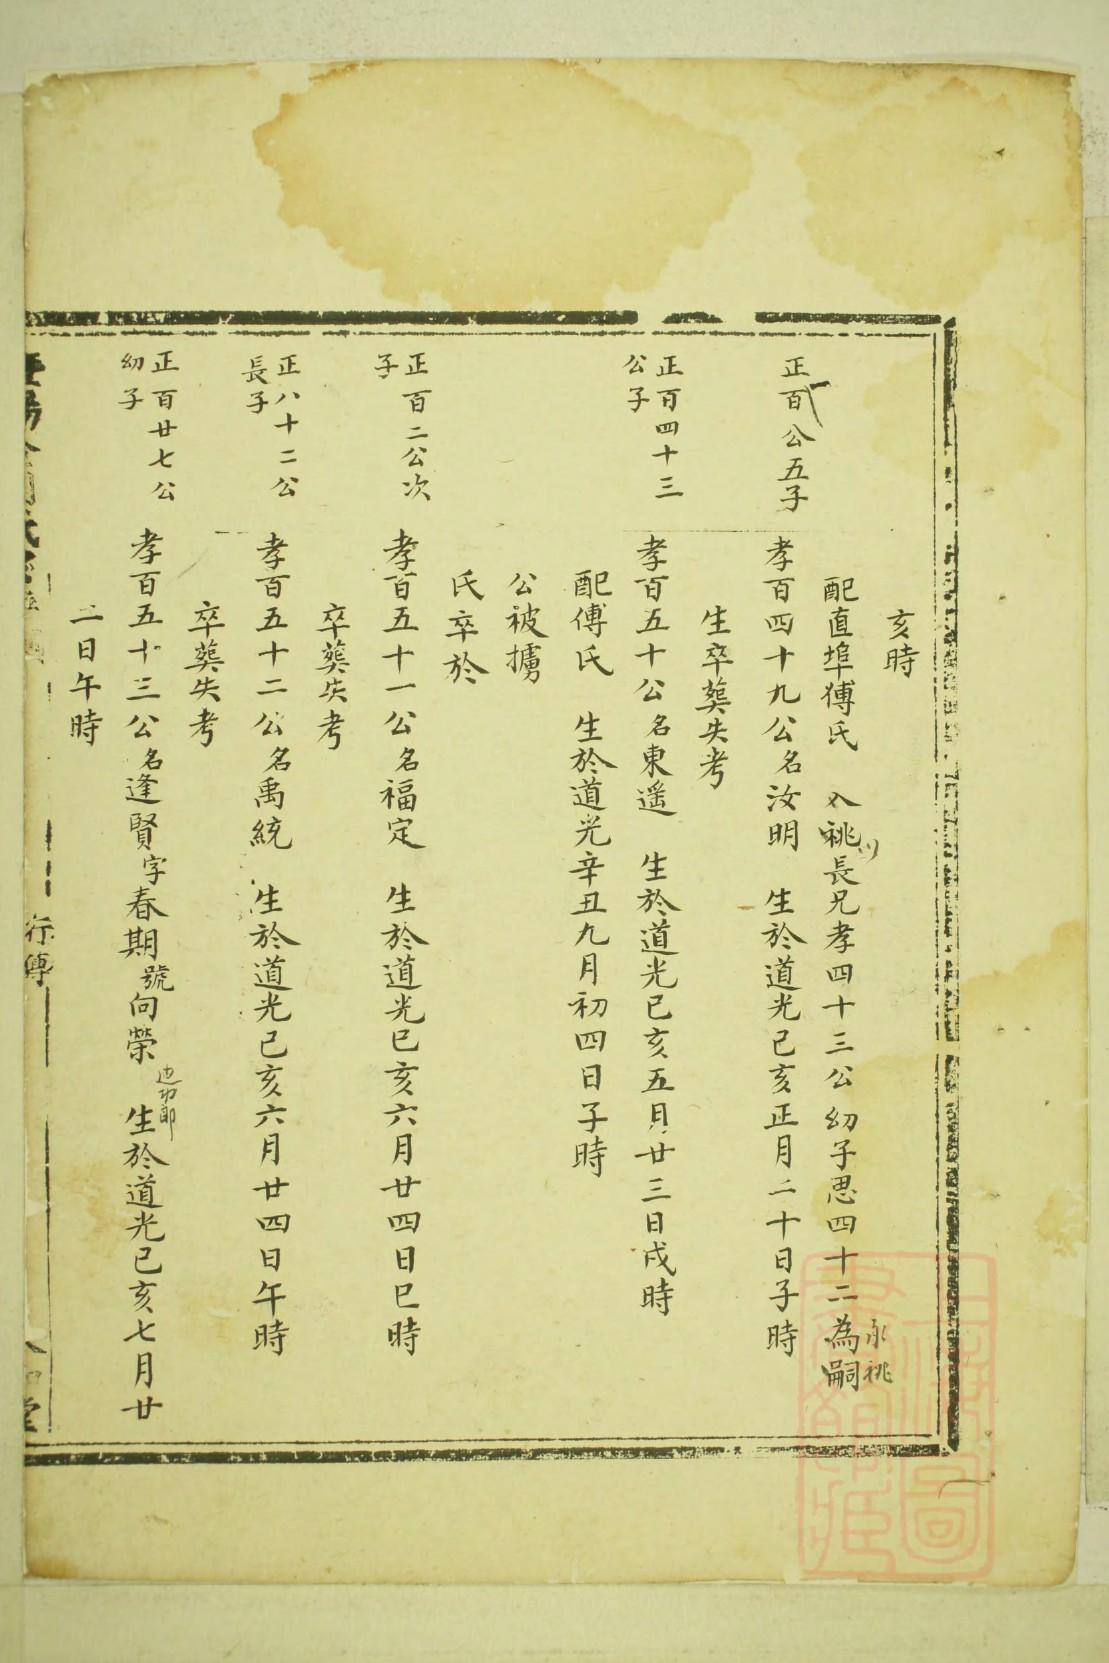 亥時
配直埠傅氏 入祧長兄孝四十三公幼子思四十二為嗣
永祧
正百公五子
孝百四十九公名汝明 生於道光己亥正月二十日子時
生卒葬失考
正百四十三
公子
孝百五十公名東遥 生於道光己亥五月廿三日戌時
配傅氏 生於道光辛丑九月初四日子時
公被擄
氏卒於
正百二公次
子
孝百五十一公名福定 生於道光己亥六月廿四日巳時
卒葬失考
正八十二公
長子
孝百五十二公名禹統 生於道光己亥六月廿四日午時
卒葬失考
正百廿七公
幼子
孝百五十三公名逢賢字春期號向榮 生於道光己亥七月廿
二日午時
行傳
堂